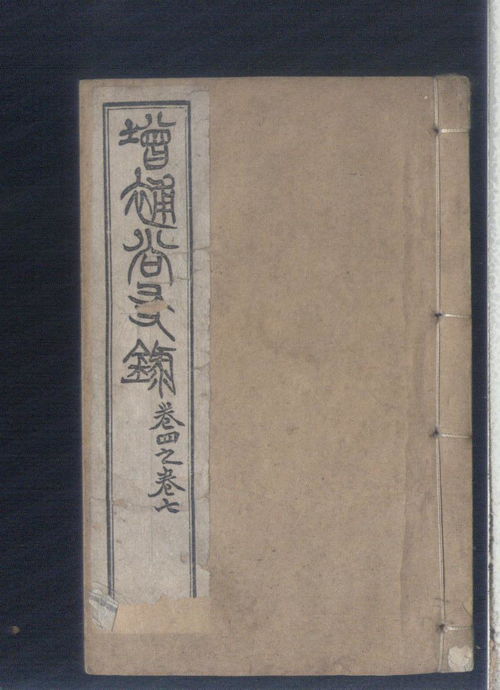 增補尚友錄
卷四之卷七